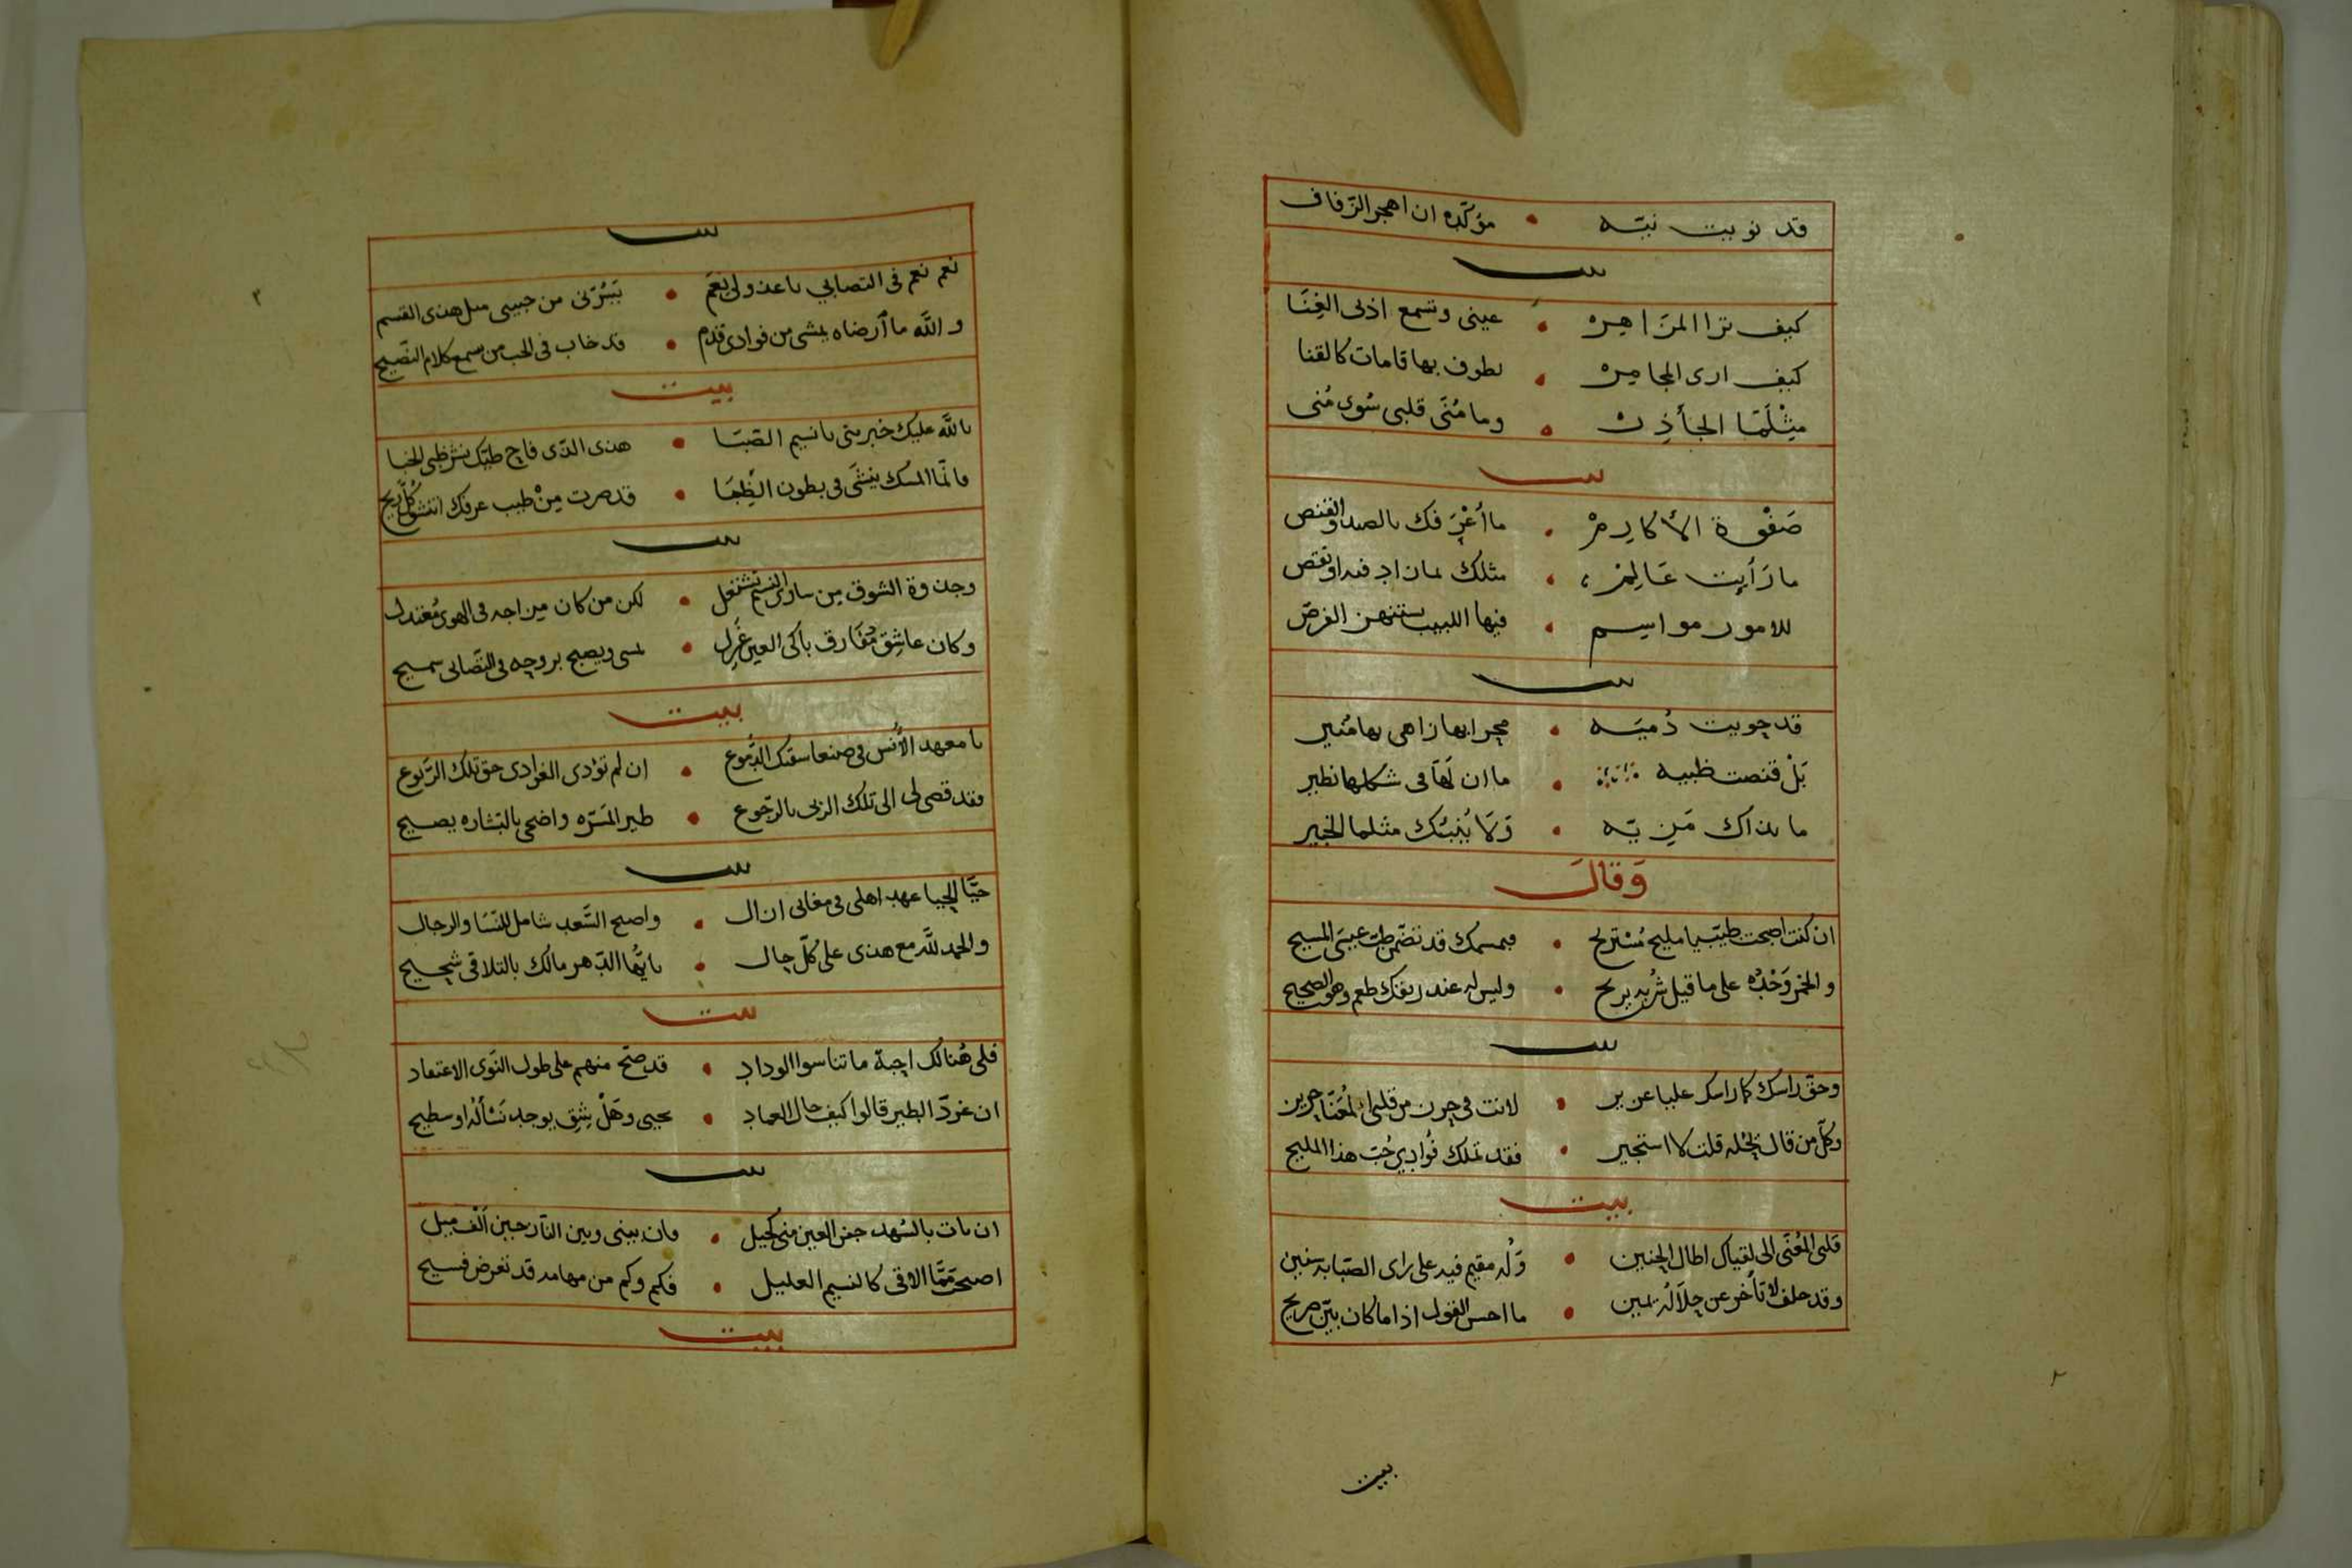 قد نويت نيّه • مؤكّده ان اهجر الزفاف
بيت
كيف ترا المزاهره • عينى وتسمع اذنى الغِنَا
كيف ارى المجامره • يطوف بها قامات كالقنا
مِثْلَمَا الجأذره • وما مُنَى قلبى سُوى مُنى
بيت
صَفْوة الأكارمْ • ما أعْرَفك بالصيد والقنص
ما رَأيت عَالِمْ • مثلك بمازاد فيه او نقص
للامور مواسم • فيها اللبيب ينتهز الفرص
بيت
قد حويت دُميَه • محرابها زاهى بها مُنير
بَلْ قنصت ظبيه • ما ان لَهَا فى شكلها نظير
ما بذاك مَزِيّه • وَلَا يُنْبئك مثلما الخبير
وَقالَ
ان كنت اصبحت طبيب يا مليح مُسْتريح • فبمسمك قد تضمّن طبّ عيسَى المسيح
والخمر وَحْدُه على ما قيل شُربه يريح • وليس له عند ريقك طعم وهو الصحيح
بيت
وحقّ راسك كما راسك عليا عزيز • لانت فى حرز من قلبى المُعَنّا حريز
وكلّ من قال خلّه قلت لا استجيز • فقد تملك فُوادى حُبّ هذا المليح
بيت
قلبى المُعَنَّى الى لقياك اطال الحنين • وَلُه مقيم فيه على راى الصبّابه سنين
وقد حلف لا تأخر عن حلالُه يمين • ما احسن القول اذا ما كان بيّن صريح
بيت
بيت
نعم نعم فى التصابي يا عذولى نعَم • يَبَرّنى من حبيبى مثل هذى القسم
والله ما أرضاه يمشى من فوادى قدم • قد خاب فى الحب من يسمع كلام النصّيح
بيت
بالله عليك خبريتى يا نسيم الصّبَا • هذى الذّى فاح طيبك نشر ظبى الخبا
فانّما المسك ينشَى فى بطون الظِّبَا • قد صرت مِنْ طيب عرفك انتشق كُلّ ريح
بيت
وجذوة الشوق من سارى النسيم تشتعل • لكن من كان مزاجه فى الهوى مُعْتدل
وكان عاشق مُفَارق باكى العين غَزِل • يمسى ويصبح بروحه فى التّصابى سميح
بيت
يا معهد الأُنس فى صنعا سقتك الدّموع • ان لم تؤدى الغوادى حق تلك الرّبوع
فقد قضى لى الى تلك الربى بالرّجوع • طير المَسَرّه واضحى بالبَشَاره يصيح
بيت
حيّا الحيا عهد اهلى فى مغانى ازال • واصبح السَّعد شامل للنّسَا والرجال
والحمد للَّه مع هذى على كلّ حال • يا ايّها الدّهر مالك بالتلاقى شحيح
بيت
فلى هُنالك احبّة ما تناسوا الوداد • قد صَحّ منهم على طول النّوى الاعتقاد
ان غرّد الطير قالوا كيف حال العماد • يحيى وهَلْ شِقّ يوجد نَسْألُه او سطيح
بيت
ان بات بالسُهد جفن العين منى كحيل • فان بينى وبين النّازحين أَلْف ميل
اصبحت ممّا الاقى كالنسيم العليل • فكم وكم من مهامه قد تعرض فسيح
بيت